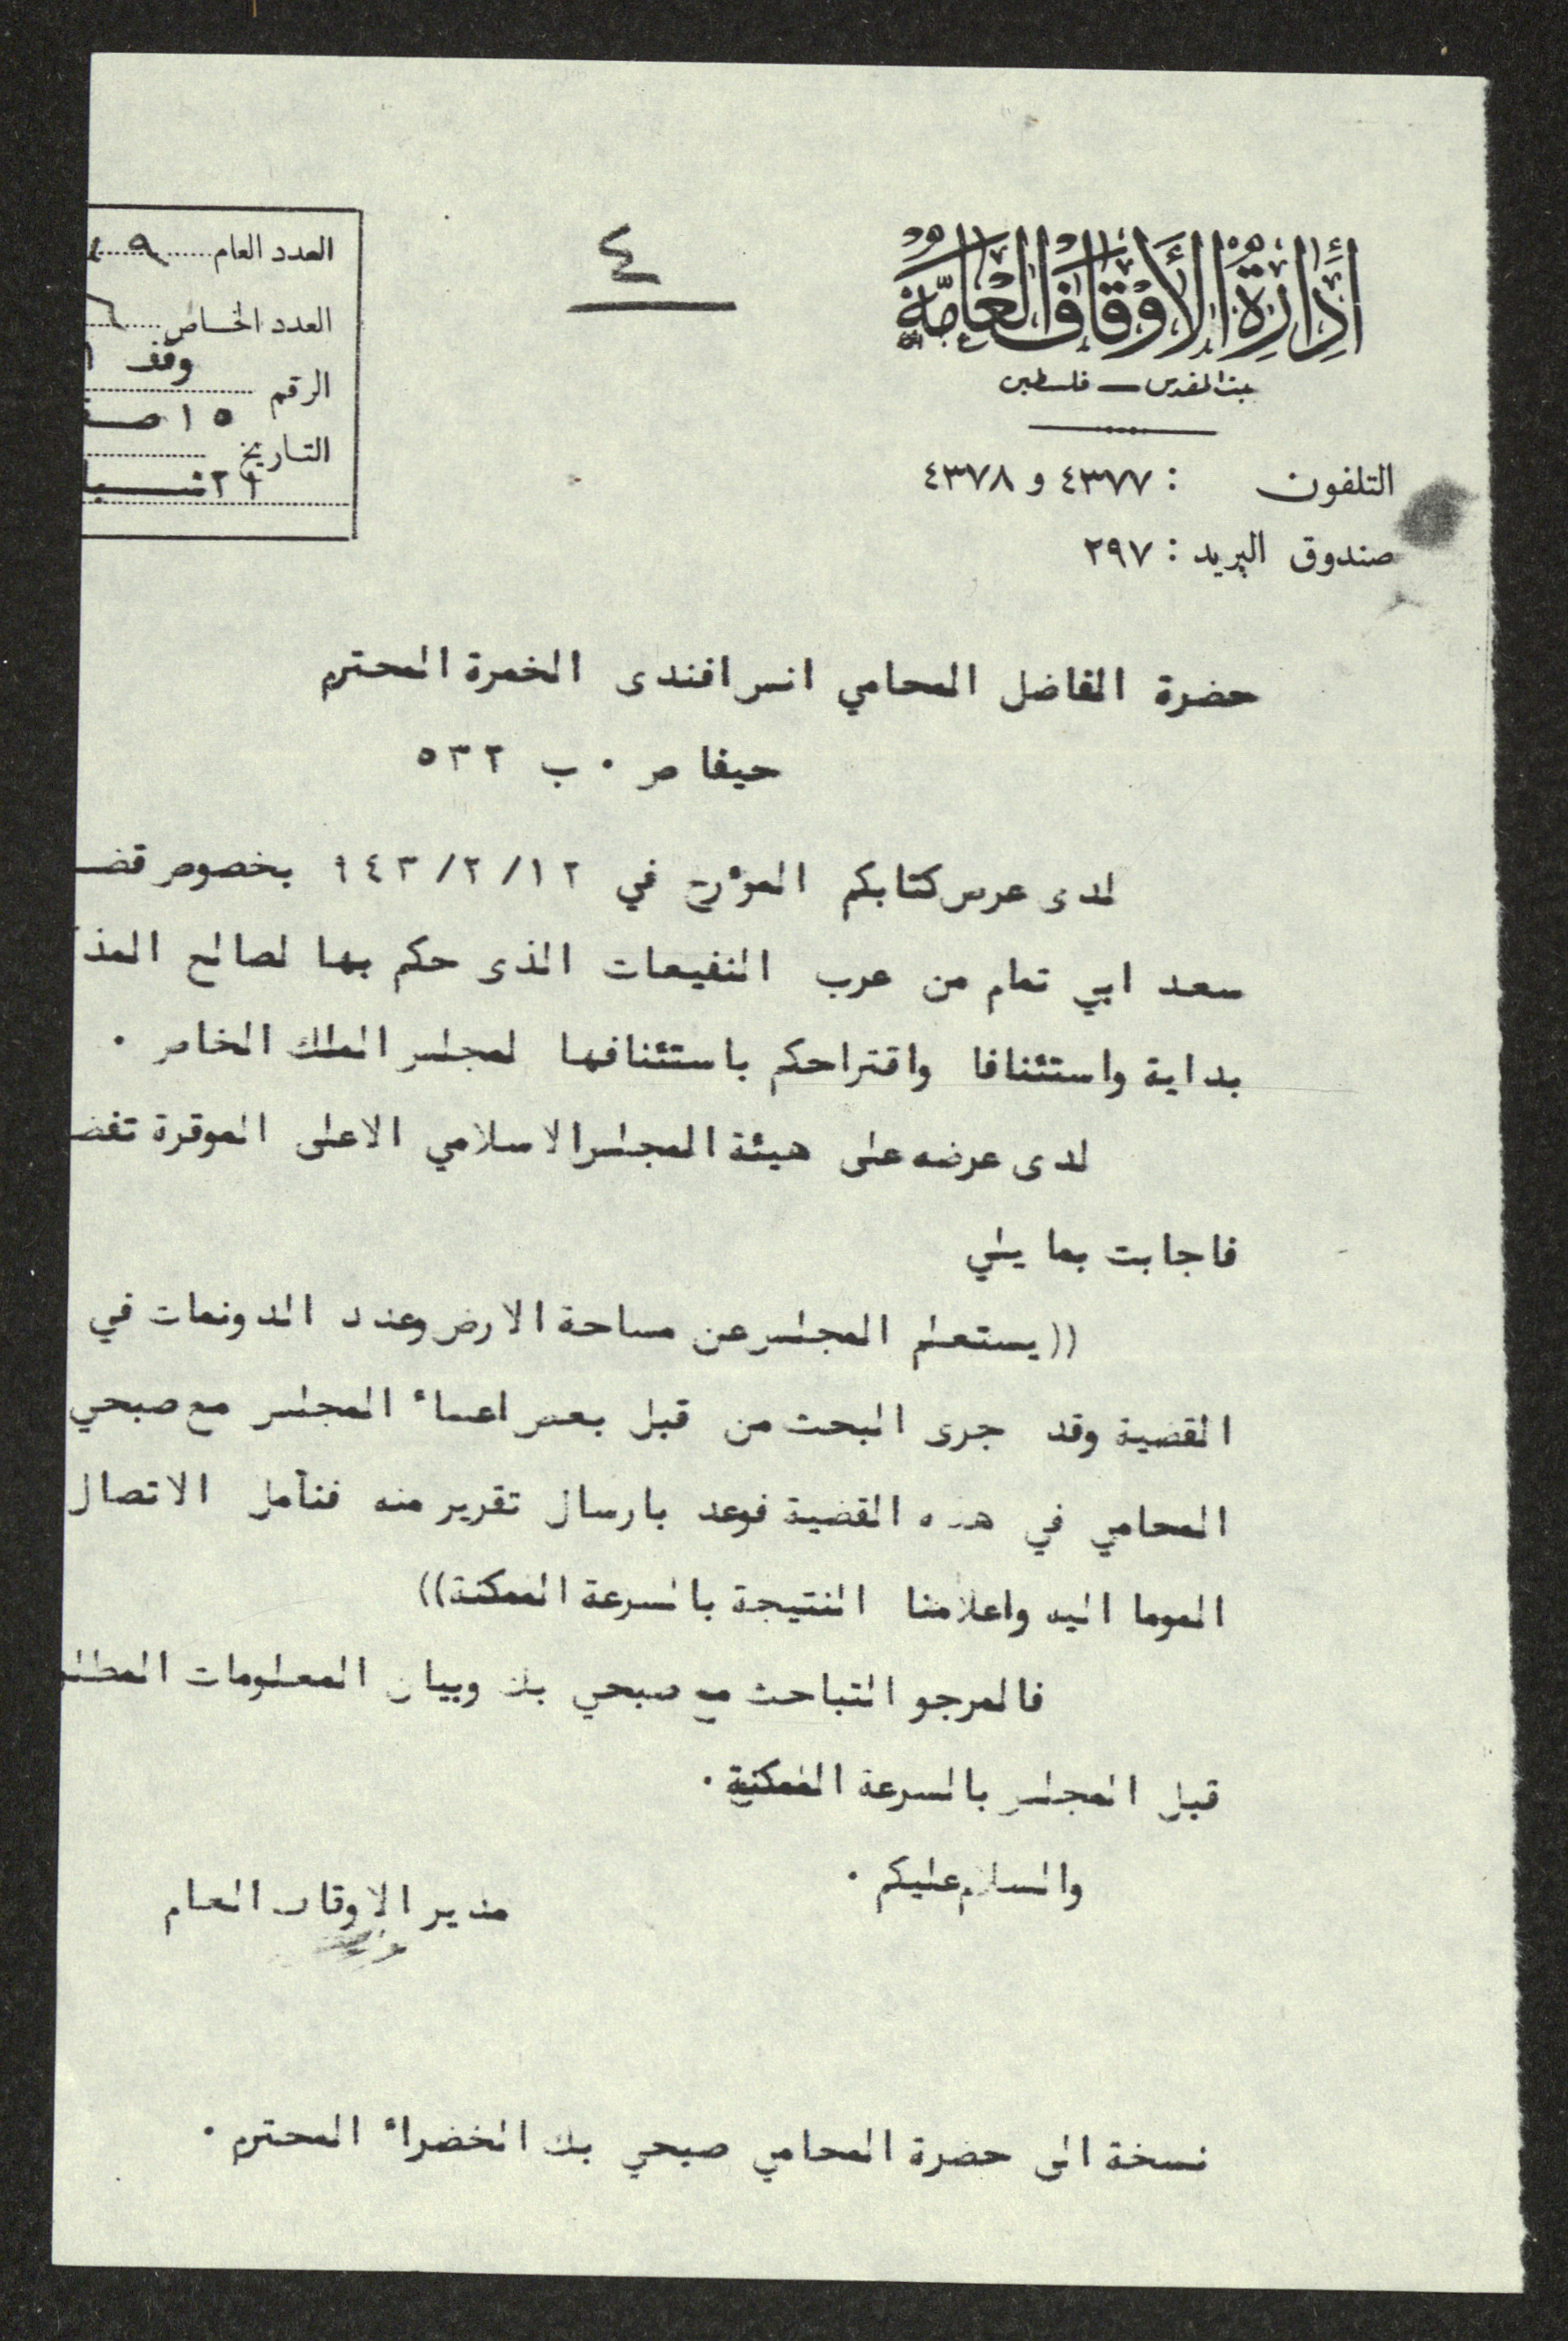 إدارة الأوقاف العامة
بيت المقدس — فلسطين
التلفون : ٤٣٧٧ و ٤٣٧٨
صندوق البريد : ٢٩٧
٤
العدد العام
العدد الخاص
الرقم وقف
التاريخ ١٥ صف
٢١ شبا
حضرة الفاضل المحامي انس افندى الخمرة المحترم
حيفا ص ٠ ب ٥٣٢
لدى عرض كتابكم المؤرخ في ١٢ /٢ /٩٤٣ بخصوص قض
سعد ابي تمام من عرب النفيعات الذى حكم بها لصالح المذ
بداية واستئنافا واقتراحكم باستئنافها لمجلس الملك الخاص ٠
لدى عرضه على هيئة المجلس الاسلامي الاعلى الموقرة تفض
فاجابت بما يلي
((يستعلم المجلس عن مساحة الارض وعدد الدونمات في
القضية وقد جرى البحث من قبل بعض اعضاء المجلس مع صبحي
المحامي في هذه القضية فوعد بارسال تقرير منه فنأمل الاتصال
الموما اليه واعلامنا النتيجة بالسرعة الممكنة))
فالمرجو التباحث مع صبحي بك وبيان المعلومات المطلو
قبل المجلس بالسرعة الممكنة ٠
والسلام عليكم ٠
مدير الاوقاف العام
نسخة الى حضرة المحامي صبحي بك الخضراء المحترم ٠